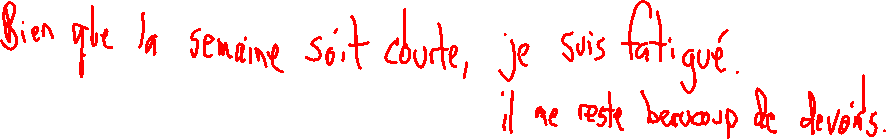 Bien que la semaine soit courte, je suis fatigué.
il me reste beaucoup de devoirs.